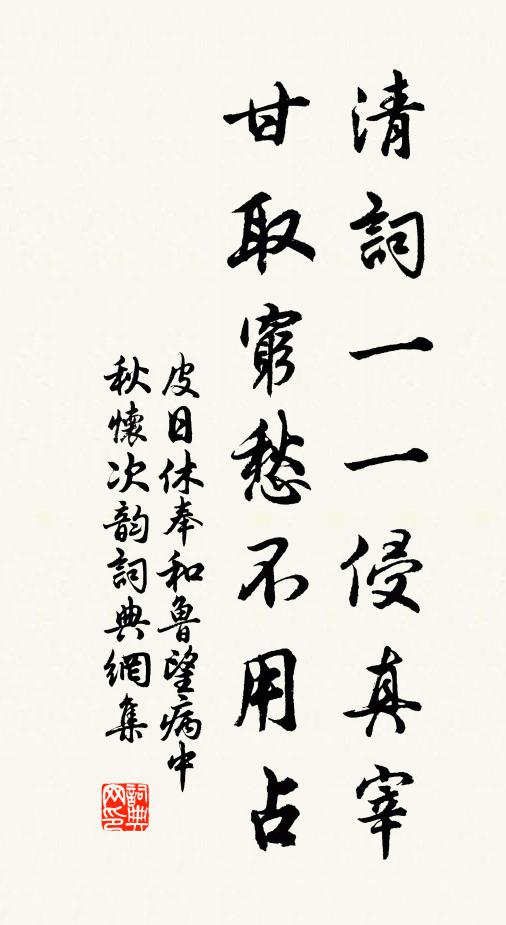 清詞一一侵真宰
甘取窮愁不用占
皮日休奉和魯望病中
秋懷次韵詞典網集
詞典
网印